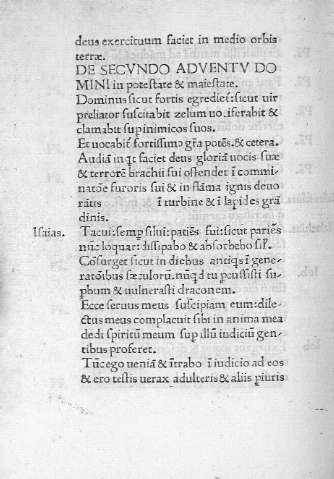 deus exercituum faciet in medio orbis
terræ.
DE SECVNDO ADVENTV DO
MINI in potestate & maiestate.
Dominus sicut fortis egredieť: sicut uir
preliator suscitabit zelum uo.iferabit &
clamabit sup inimicos suos.
Et uocabiť fortissimo gr̃a potẽs. & cetera.
Audiã in qt faciet deus gloriã uocis suæ
& terrorẽ brachii sui ostendet ĩ commi-
natõe furoris sui & in flãma ignis deuo
rãtis ĩ turbine & ĩ lapides grã
dinis.
Isaias. Tacui: semp silui: patiẽs fui: sicut pariẽs
nũc loquar: dissipabo & absorbebo sil'.
Cõsurget sicut in diebus antiqs ĩ gene-
ratõibus sæculorũ. nũqd tu pcussisti su-
pbum & uulnerasti draconem.
Ecce seruus meus suscipiam eum: dile-
ctus meus complacuit sibi in anima mea
dedi spiritũ meum sup illũ iudiciũ gen-
tibus proferet.
Tũc ego ueniã & ĩtrabo ĩ iudicio ad eos
& ero testis uerax adulteris & aliis piuris